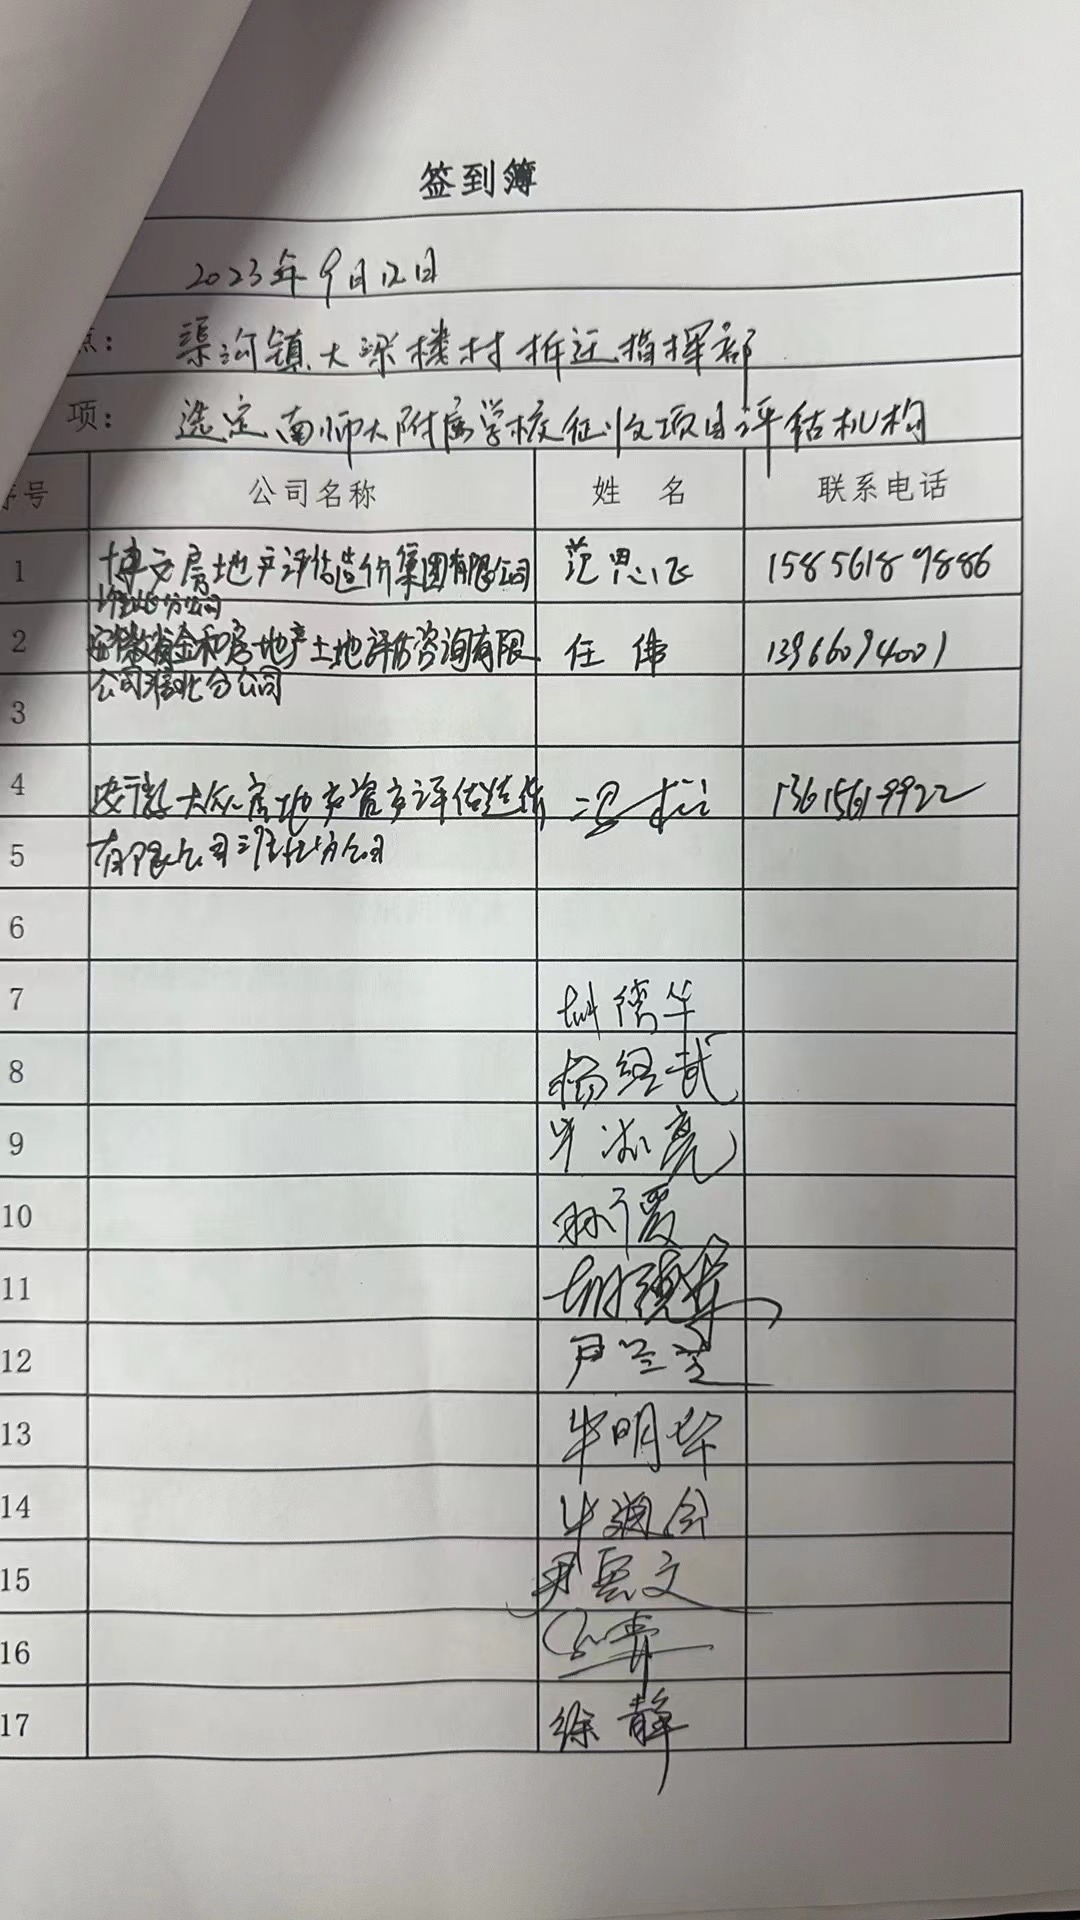 签到簿
2023年9月12日
点： 渠沟镇大梁楼村拆迁指挥部
项： 选定南师大附属学校征收项目评估机构
序号 公司名称 姓 名 联系电话
1 博文房地产评估造价集团有限公司 范思飞 15856189886
淮北分公司
2 安徽省金和房地产土地评估咨询有限 任伟 13966094001
公司淮北分公司
3
4 安徽大众房地产资产评估造价 13615619922
5 有限公司淮北分公司
6
7
8 杨经武
9
10
11
12 尹兰芝
13 牛明华
14
15
16
17 徐静